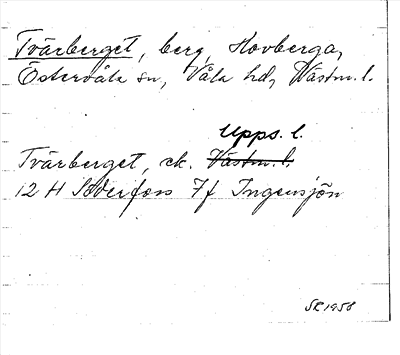 Tvärberget, berg, Hovberga,
Östervåla sn, Våla hd, Västm. l.
Upps. l.
Tvärberget, ek. Västm. l.
12 H Söderfors 7f Ingensjön
SK 1958